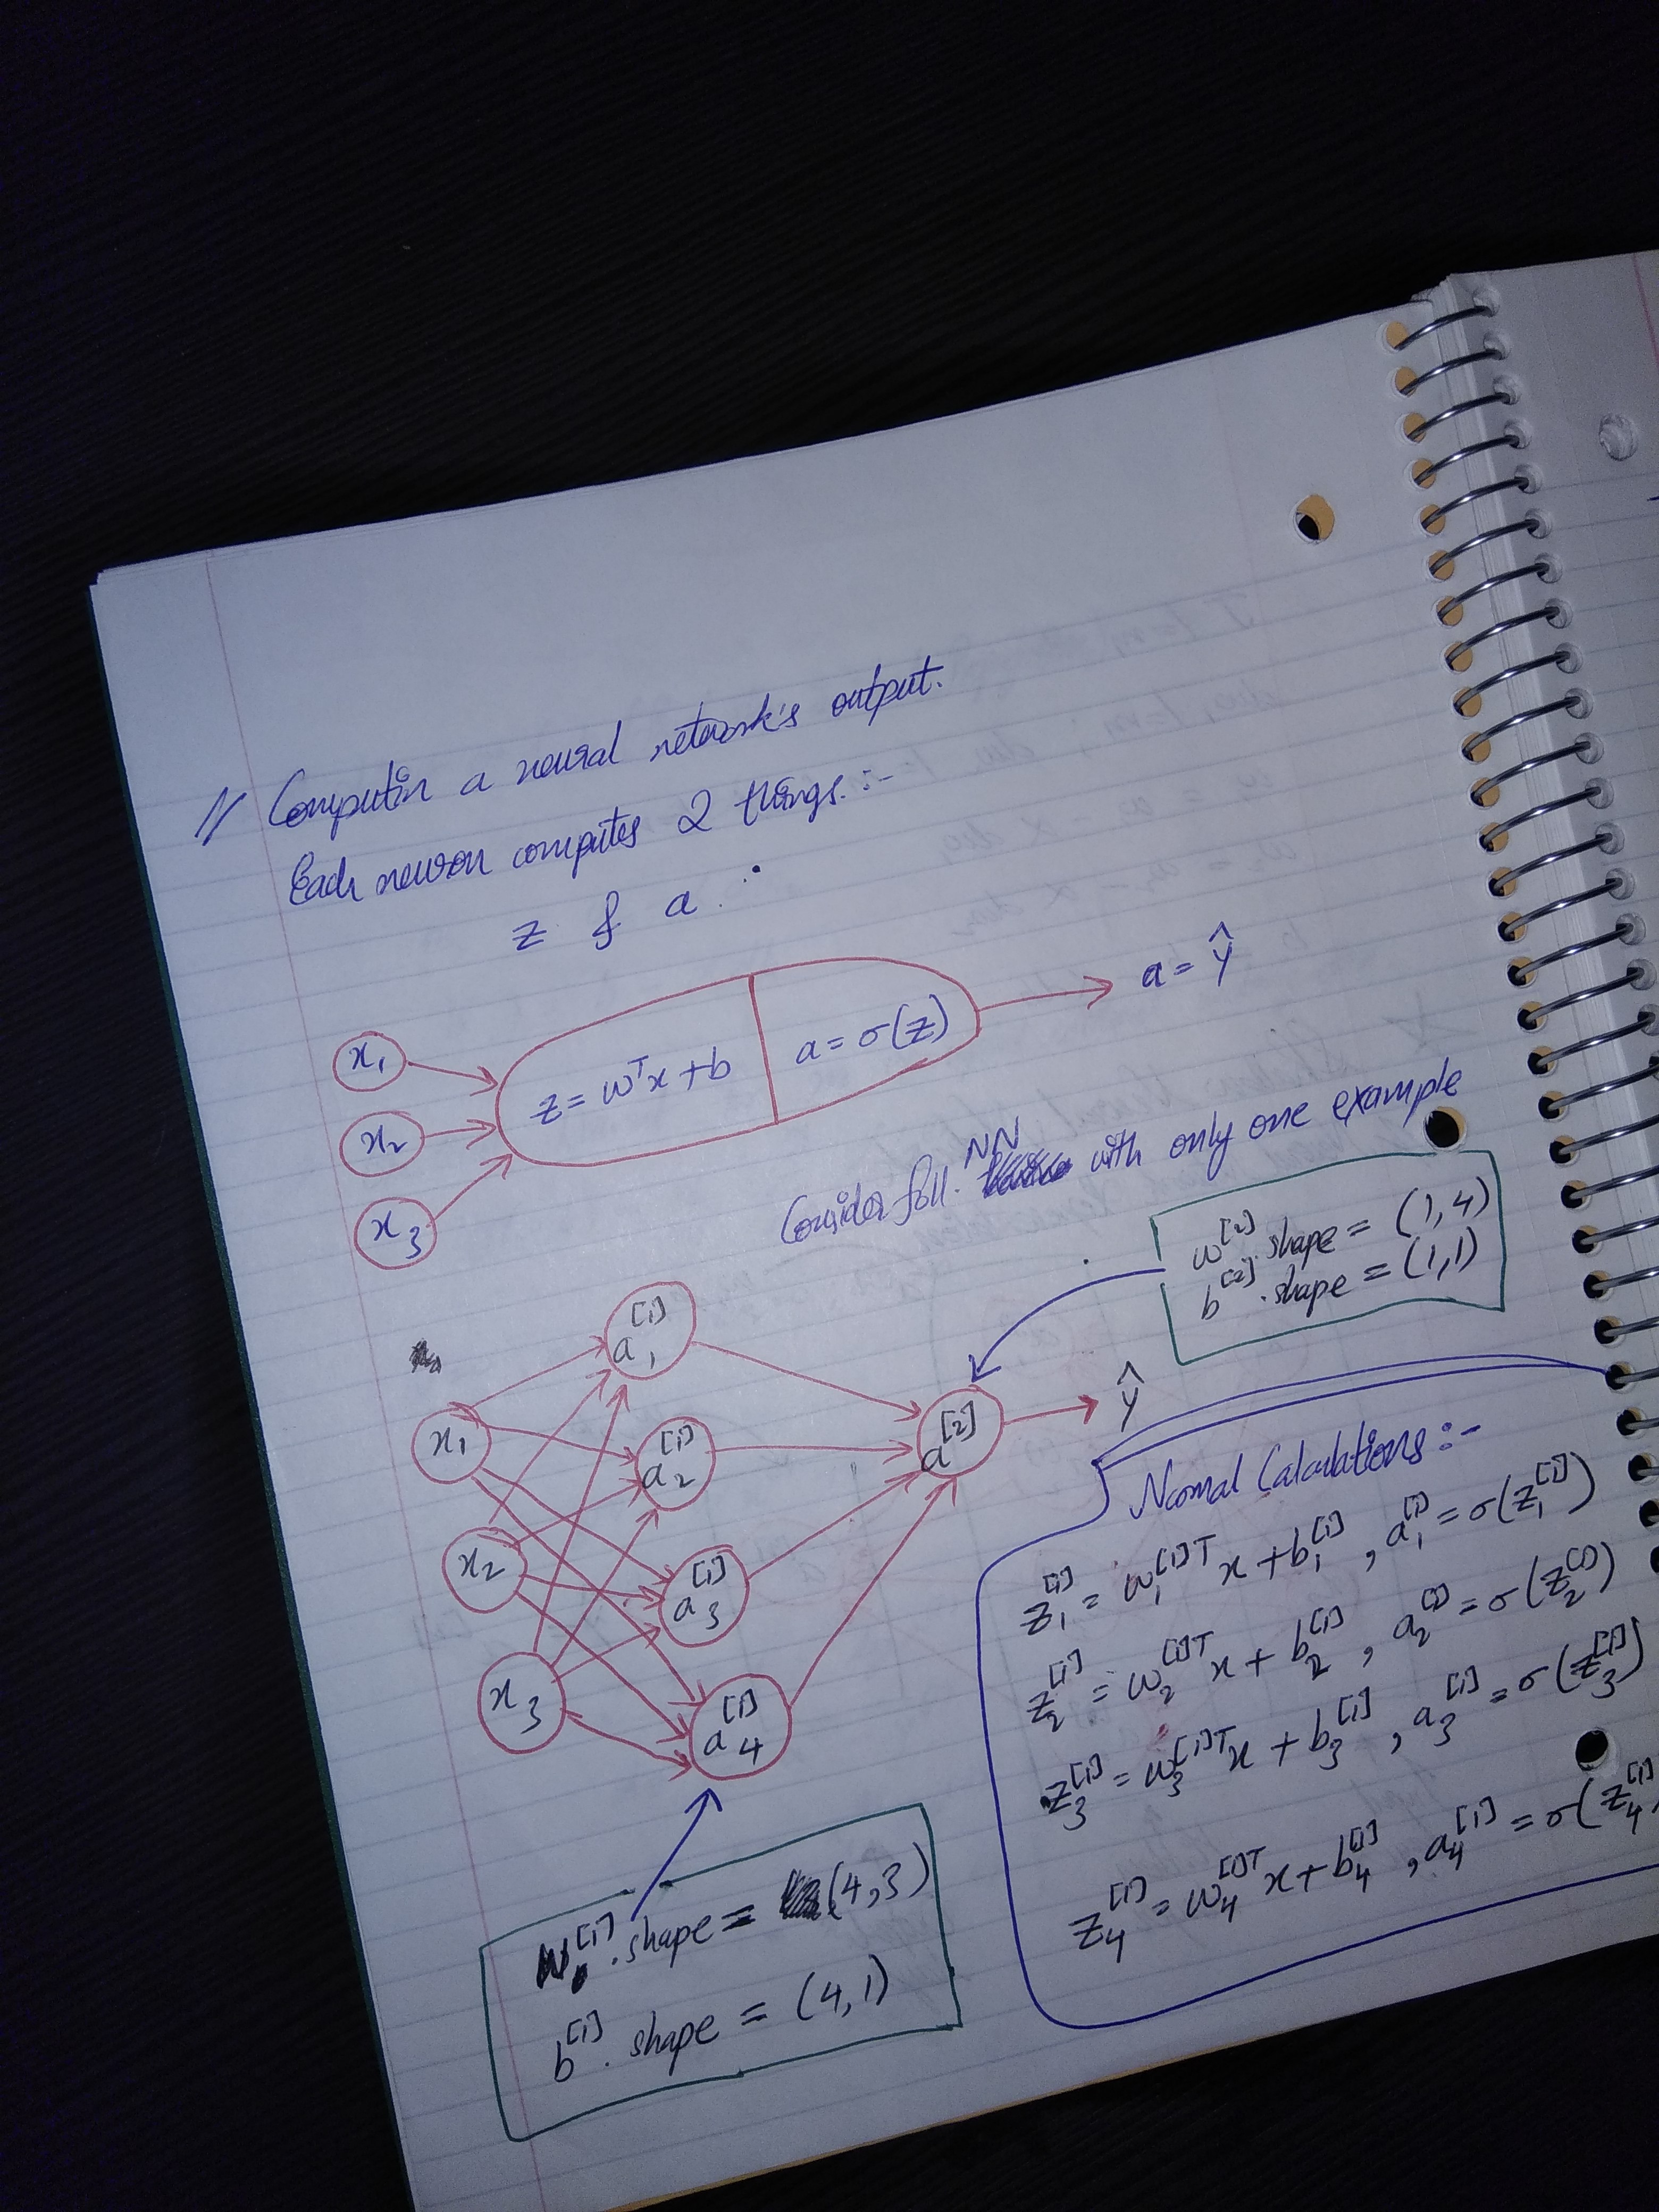 // Computin a neural network's output.
Each neuron computes 2 things. :-
z & a.
x₁
x₂
x₃
z = wᵀx + b
a = σ(z)
a = ŷ
Consider foll. NN with only one example
w^[2].shape = (1,4)
b^[2].shape = (1,1)
x₁
x₂
x₃
a₁^[1]
a₂^[1]
a₃^[1]
a₄^[1]
a^[2]
ŷ
Normal Calculations :-
z₁^[1] = w₁^[1]T x + b₁^[1] , a₁^[1] = σ(z₁^[1])
z₂^[1] = w₂^[1]T x + b₂^[1] , a₂^[1] = σ(z₂^[1])
z₃^[1] = w₃^[1]T x + b₃^[1] , a₃^[1] = σ(z₃^[1])
z₄^[1] = w₄^[1]T x + b₄^[1] , a₄^[1] = σ(z₄^[1]
W^[1].shape = (4,3)
b^[1].shape = (4,1)